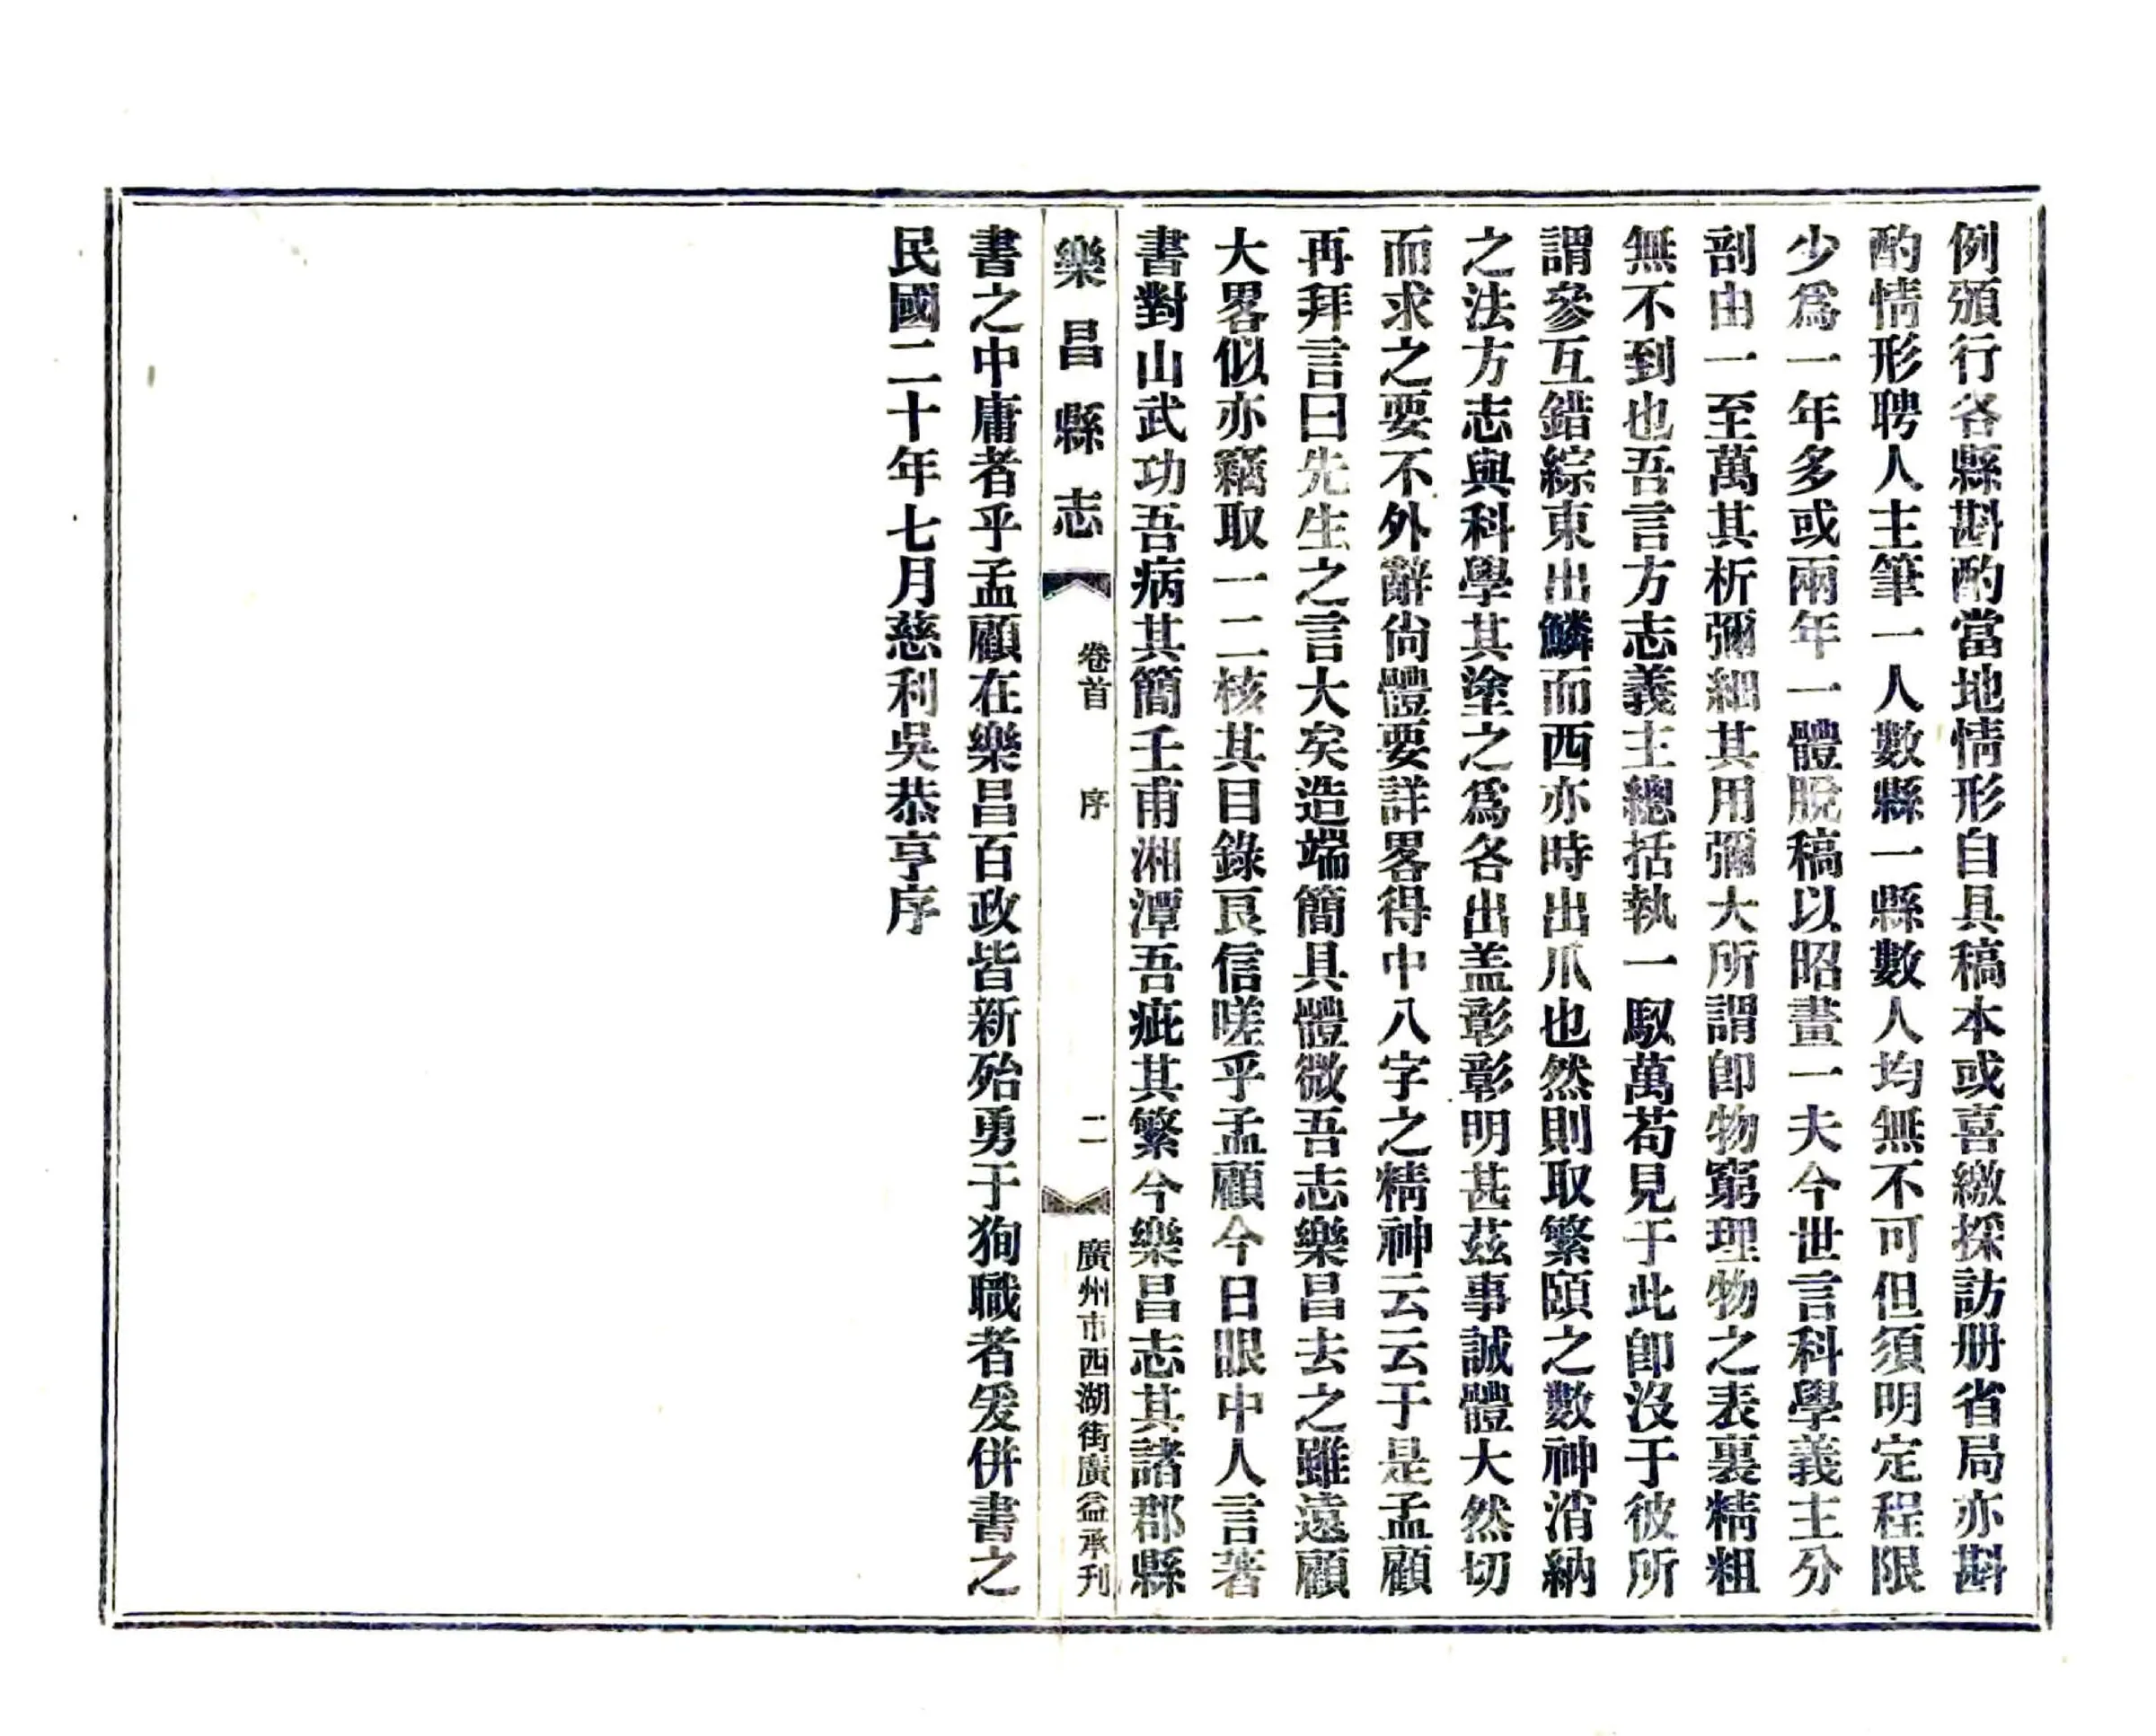 例頒行各縣斟酌當地情形自具稿本或喜繳採訪册省局亦斟
酌情形聘人主筆一人數縣一縣數人均無不可但須明定程限
少爲一年多或兩年一體脫稿以昭畫一夫今世言科學義主分
剖由一至萬其析彌細其用彌大所謂卽物窮理物之表裏精粗
無不到也吾言方志義主總括執一馭萬苟見于此卽沒于彼所
謂參互錯綜東出鱗而西亦時出爪也然則取繁頤之數神消納
之法方志與科學其塗之爲各出盖彰彰明甚茲事誠體大然切
而求之要不外辭尙體要詳畧得中八字之精神云云于是孟顧
再拜言曰先生之言大矣造端簡具體微吾志樂昌去之雖遠顧
大畧似亦竊取一二核其目錄良信嗟乎孟顧今日眼中人言著
書對山武功吾病其簡壬甫湘潭吾疵其繁今樂昌志其諸郡縣
樂昌縣志
卷首
序
二
廣州市西湖街廣益承刊
書之中庸者乎孟顧在樂昌百政皆新殆勇于狥職者爰併書之
民國二十年七月慈利吳恭亨序